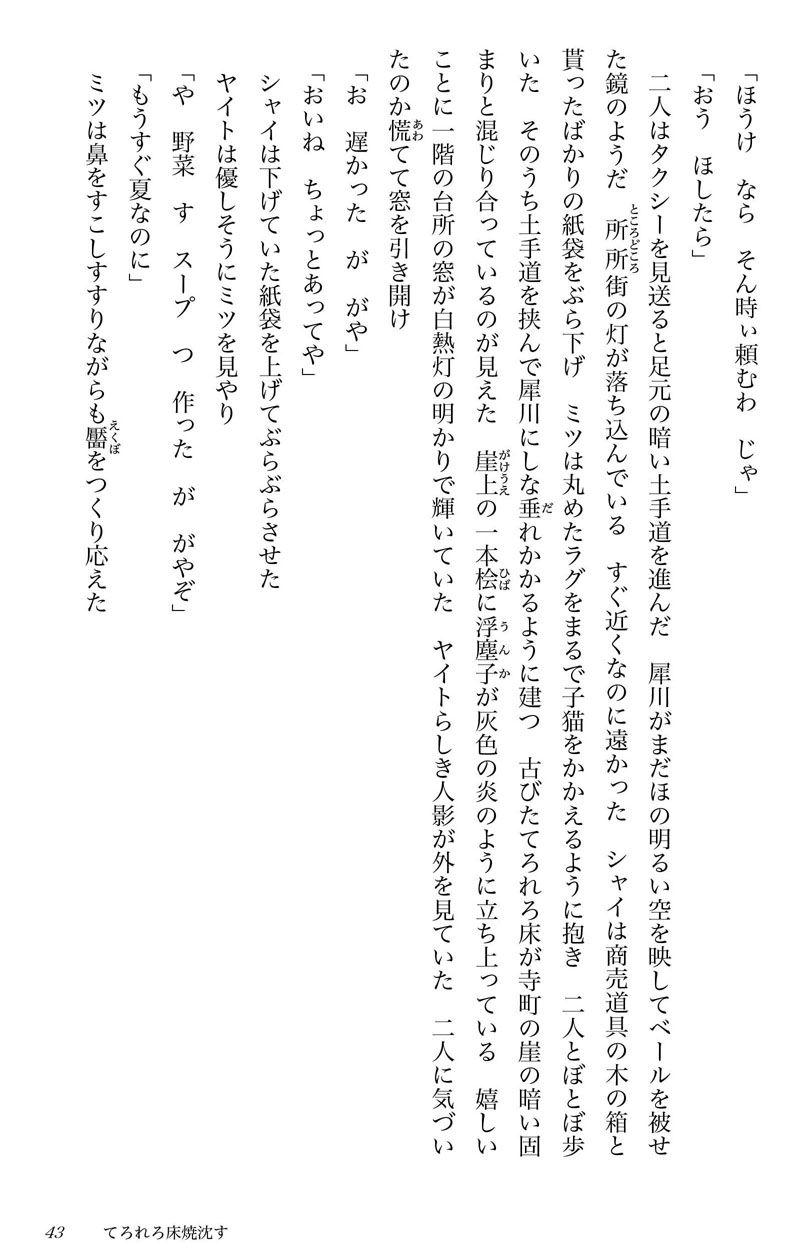 「ほうけ　なら　そん時ぃ頼むわ　じゃ」
「おう　ほしたら」
　二人はタクシーを見送ると足元の暗い土手道を進んだ　犀川がまだほの明るい空を映してベールを被せ
た鏡のようだ　所所街の灯が落ち込んでいる　すぐ近くなのに遠かった　シャイは商売道具の木の箱と
貰ったばかりの紙袋をぶら下げ　ミツは丸めたラグをまるで子猫をかかえるように抱き　二人とぼとぼ歩
いた　そのうち土手道を挟んで犀川にしな垂れかかるように建つ　古びたてろれろ床が寺町の崖の暗い固
まりと混じり合っているのが見えた　崖上の一本桧に浮塵子が灰色の炎のように立ち上っている　嬉しい
ことに一階の台所の窓が白熱灯の明かりで輝いていた　ヤイトらしき人影が外を見ていた　二人に気づい
たのか慌てて窓を引き開け
「お　遅かった　が　がや」
「おいね　ちょっとあってや」
　シャイは下げていた紙袋を上げてぶらぶらさせた
　ヤイトは優しそうにミツを見やり
「や　野菜　す　スープ　つ　作った　が　がやぞ」
「もうすぐ夏なのに」
　ミツは鼻をすこしすすりながらも靨をつくり応えた
ところどころ
だ
がけうえ
ひば
うんか
あわ
えくぼ
43　てろれろ床焼沈す